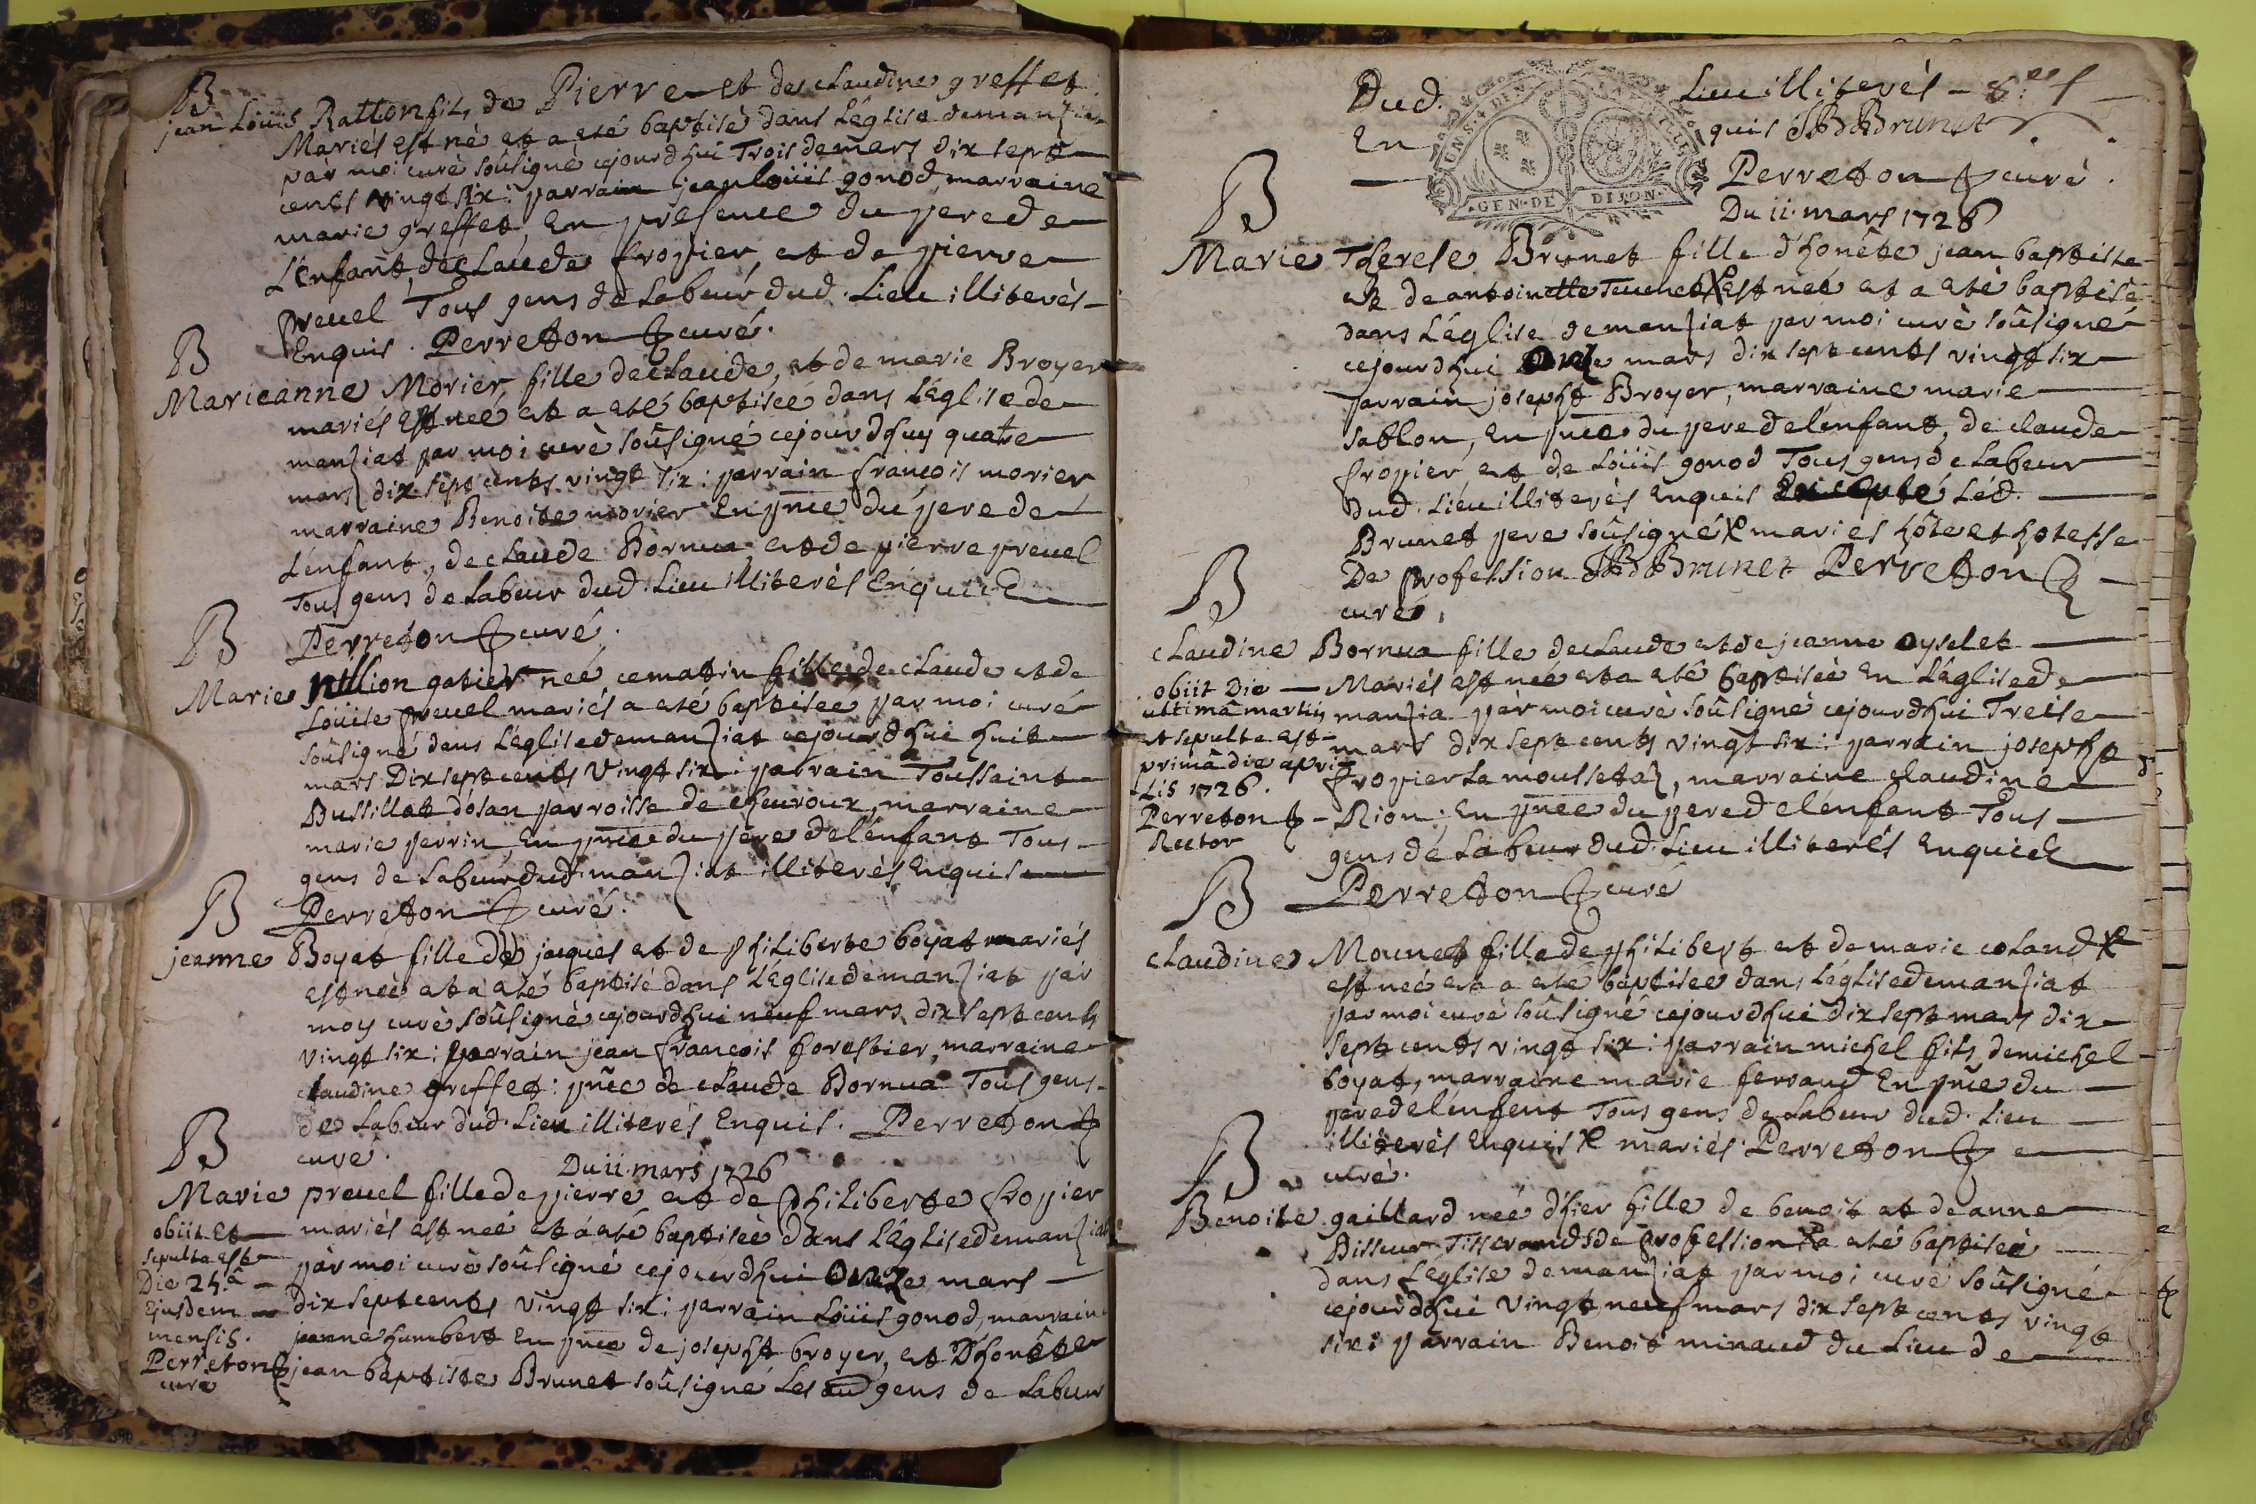 B
jean Loüis Ratton fils de Pierre et de claudine greffet
Mariés est né et a eté baptisé dans L'église de manziat
par moi curé soûsigné cejourd'hui Trois de mars dix sept
cents vingt six : parrain jean loüis gonod, marraine
marie greffet, En presence du pere de
L'enfant, de Claude fropier, et de pierre
preuel Tous gens de Labeur dud. Lieu illiterés
Enquis . Perreton curé.
B
Marieanne Morier fille de Claude, et de marie Broyer
mariés Est née et a eté baptisée dans L'église de
manziat par moi curé soûsigné cejourd'huy quatre
mars dix sept cents vingt six : parrain françois morier
marraine Benoite morier En pnce du pere de
L'enfant, de Claude Bornua et de pierre preuel
Tous gens de Labeur dud. Lieu illiterés Enquis
Perreton curé.
B
Marie nillion gatier née ce matin fille de Claude et de
Loüise preuel mariés a eté baptisée par moi curé
soûsigné dans L'église de manziat cejourd'hui huit
mars Dix sept cents Vingt six : parrain Toussaint
Bussillat dosan parroisse de cheuroux, marraine
marie perrin En pnce du pere de l'énfant Tous
gens de Labeur dud. manziat illiterés Enquis
Perreton curé.
B
jeanne Boyat fille de jaques et de philiberte boyat mariés
est née et a eté baptisé dans L'église de manziat par
moy curé soûsigné cejourd'hui neuf mars dix sept cents
vingt six : parrain jean françois forestier, marraine
claudine greffet : pnce de Claude Bornua Tous gens
de Labeur dud. Lieu illiterés Enquis . Perreton
curé.
Du 11 mars 1726
B
Marie preuel fille de pierre et de philiberte fropier
mariés est née et a eté baptisée dans L'église de manziat
par moi curé soûsigné cejourd'hui Onze mars
dix sept cents vingt six : parrain Loüis gonod, marraine
jeanne humbert En pnce de joseph broyer, et D'honête
jean baptiste Brunet soûsigné Les gens de Labeur
obiit Et
sepulta est
Die 25.a
Ejusdem
mensis.
Perreton
curé
Dud. Lieu illiterés
En quis JB Brunet
Perreton curé.
Du 11 mars 1726
B
Marie Therese Brunet fille d'honête jean baptiste
et de antoinette Est née et a eté baptisé
dans L'église de manziat par moi curé soûsigné
cejourd'hui Onze mars dix sept cents vingt six
parrain joseph Broyer, marraine marie
sablon, En pnce du pere de l'énfant, de claude
fropier et de Loüis gonod Tous gens de Labeur
dud. Lieu illiterés Enquis Excepté Léd.
Brunet pere soûsigné mariés hôte et hotesse
De profession JB Brunet Perreton
curé.
B
claudine Bornua fille de Claude et de jeanne oyselet
Mariés est née et a eté baptisée En L'église de
manzia par moi curé soûsigné cejourd'hui Treise
mars dix sept cents vingt six : parrain joseph
fropier La moussetaz, marraine claudine
Nion : En pnce du pere de l'énfant Tous
gens de Labeur dud. Lieu illiterés Enquis
Perreton curé
obiit Die
ultimâ martiij
et sepulta est
primâ die apri
Lis 1726.
Perreton
Rector
B
claudine Mounet fille de philibert et de marie coland
est née et a eté baptisée dans L'église de manziat
par moi curé soûsigné cejourd'hui dix sept mars dix
sept cents vingt six : parrain michel fils de michel
boyat, marraine marie ferraud En pnce du
pere de l'énfent Tous gens de Labeur dud. Lieu
illiterés Enquis mariés . Perreton
curé.
B
Bénoite gaillard née d'hier fille de benoit et de anne
Disseur Tisserands de profession a eté baptisée
dans L'église de manziat par moi curé soûsigné
cejourd'hui Vingt neuf mars dix sept cents vingt
six : parrain Benoit minaud du Lieu de
GEN·DE DIJON